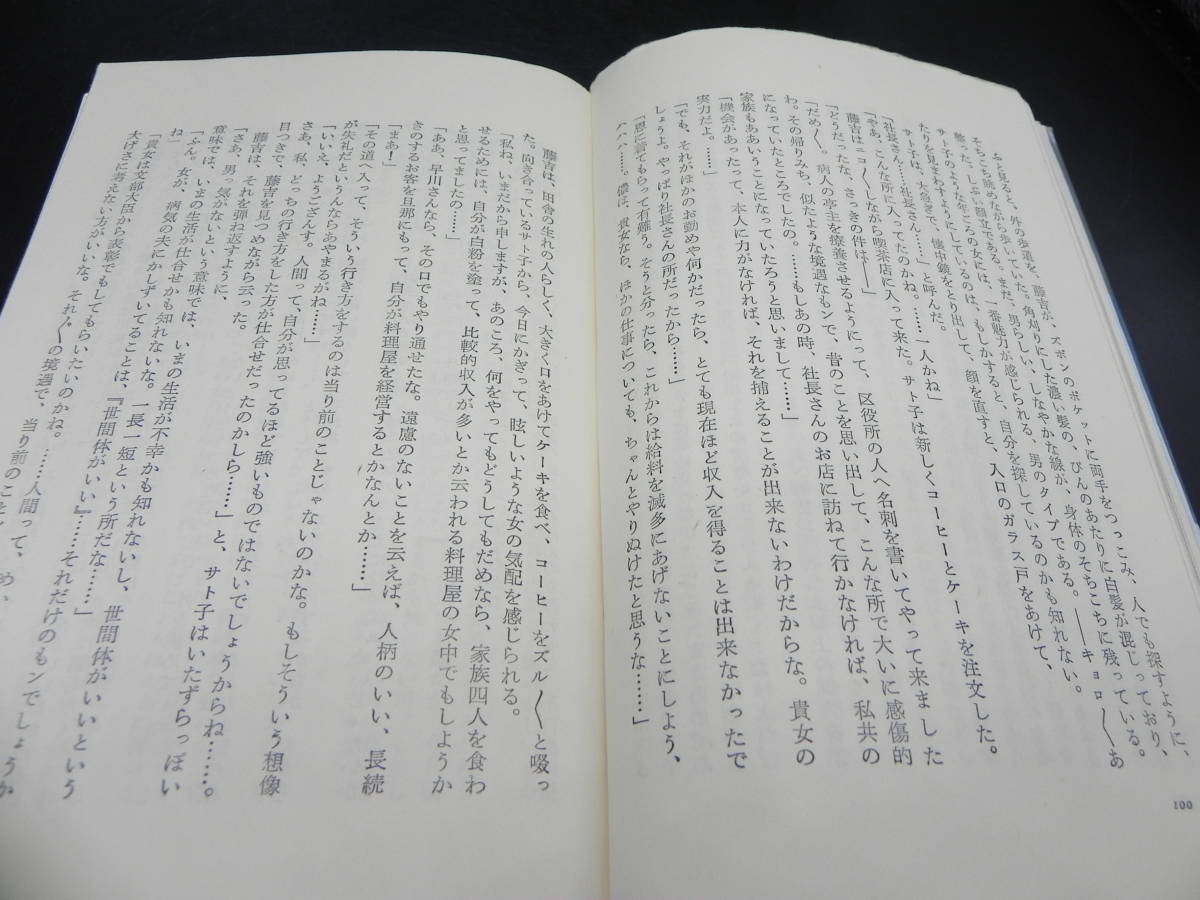 ふと見ると、外の歩道を、藤吉が、ズボンのポケットに両手をつっこみ、人でも探すように、
そちこち眺めながら歩いていた。角刈りにした濃い髪の、びんのあたりに白髪が混じっており、
整った、しぶい顔立である。まだ、男らしい、しなやかな線が、身体のそちこちに残っている。
サト子のような年ごろの女には、一番魅力が感じられる、男のタイプである。――キョロ〳〵あ
たりを見まわすようにしているのは、もしかすると、自分を探しているのかも知れない。
サト子は、大急ぎで、懐中鏡をとり出して、顔を直すと、入口のガラス戸をあけて、
「社長さん……社長さん……」と呼んだ。
「やあ、こんな所に入ってたのかね。……一人かね」
藤吉はニコ〳〵しながら喫茶店に入って来た。サト子は新しくコーヒーとケーキを注文した。
「どうだったな、さっきの件は――」
「だめ〳〵。病人の亭主を療養させるようにって、区役所の人へ名刺を書いてやって来ました
わ。その帰りみち、似たような境遇なもンで、昔のことを思い出して、こんな所で大いに感傷的
になっていたところでしたの。……もしあの時、社長さんのお店に訪ねて行かなければ、私共の
家族もああいうことになっていたろうと思いまして……」
「機会があったって、本人に力がなければ、それを捕えることが出来ないわけだからな。貴女の
実力だよ。……」
「でも、それがほかのお勤めや何かだったら、とても現在ほど収入を得ることは出来なかったで
しょうよ。やっぱり社長さんの所だったから……」
「恩に着てもらって有難う。そうと分ったら、これからは給料を滅多にあげないことにしよう、
ハハハ……。儂は、貴女なら、ほかの仕事についても、ちゃんとやりぬけたと思うな……」
100
藤吉は、田舎の生れの人らしく、大きく口をあけてケーキを食べ、コーヒーをズル〳〵と啜っ
た。向き合っているサト子から、今日にかぎって、眩しいような女の気配を感じられる。
「私ね、いまだから申しますが、あのころ、何をやってもどうしてもだめなら、家族四人を食わ
せるためには、自分が白粉を塗って、比較的収入が多いとか云われる料理屋の女中でもしようか
と思ってましたの……」
「ああ、早川さんなら、その口でもやり通せたな。遠慮のないことを云えば、人柄のいい、長続
きのするお客を旦那にもって、自分が料理屋を経営するとかなんとか……」
「まあ！」
「その道へ入って、そういう行き方をするのは当り前のことじゃないのかな。もしそういう想像
が失礼だというんならあやまるがね……」
「いいえ、ようござんす。人間って、自分が思ってるほど強いものではないでしょうからね……。
さあ、私、どっちの行き方をした方が仕合せだったのかしら……」と、サト子はいたずらっぽい
目つきで、藤吉を見つめながら云った。
藤吉は、それを弾ね返すように、
「さあ、男っ気がないという意味では、いまの生活が不幸かも知れないし、世間体がいいという
意味では、いまの生活が仕合せかも知れないな。一長一短という所だな……」
「ふん。女が、病気の夫にかしずいてることは、『世間体がいい』……それだけのもンでしょうか
ね」
「貴女は文部大臣から表彰でもしてもらいたいのかね。……人間って、め、
大げさに考えない方がいいな。それ〴〵の境遇で、当り前のこと